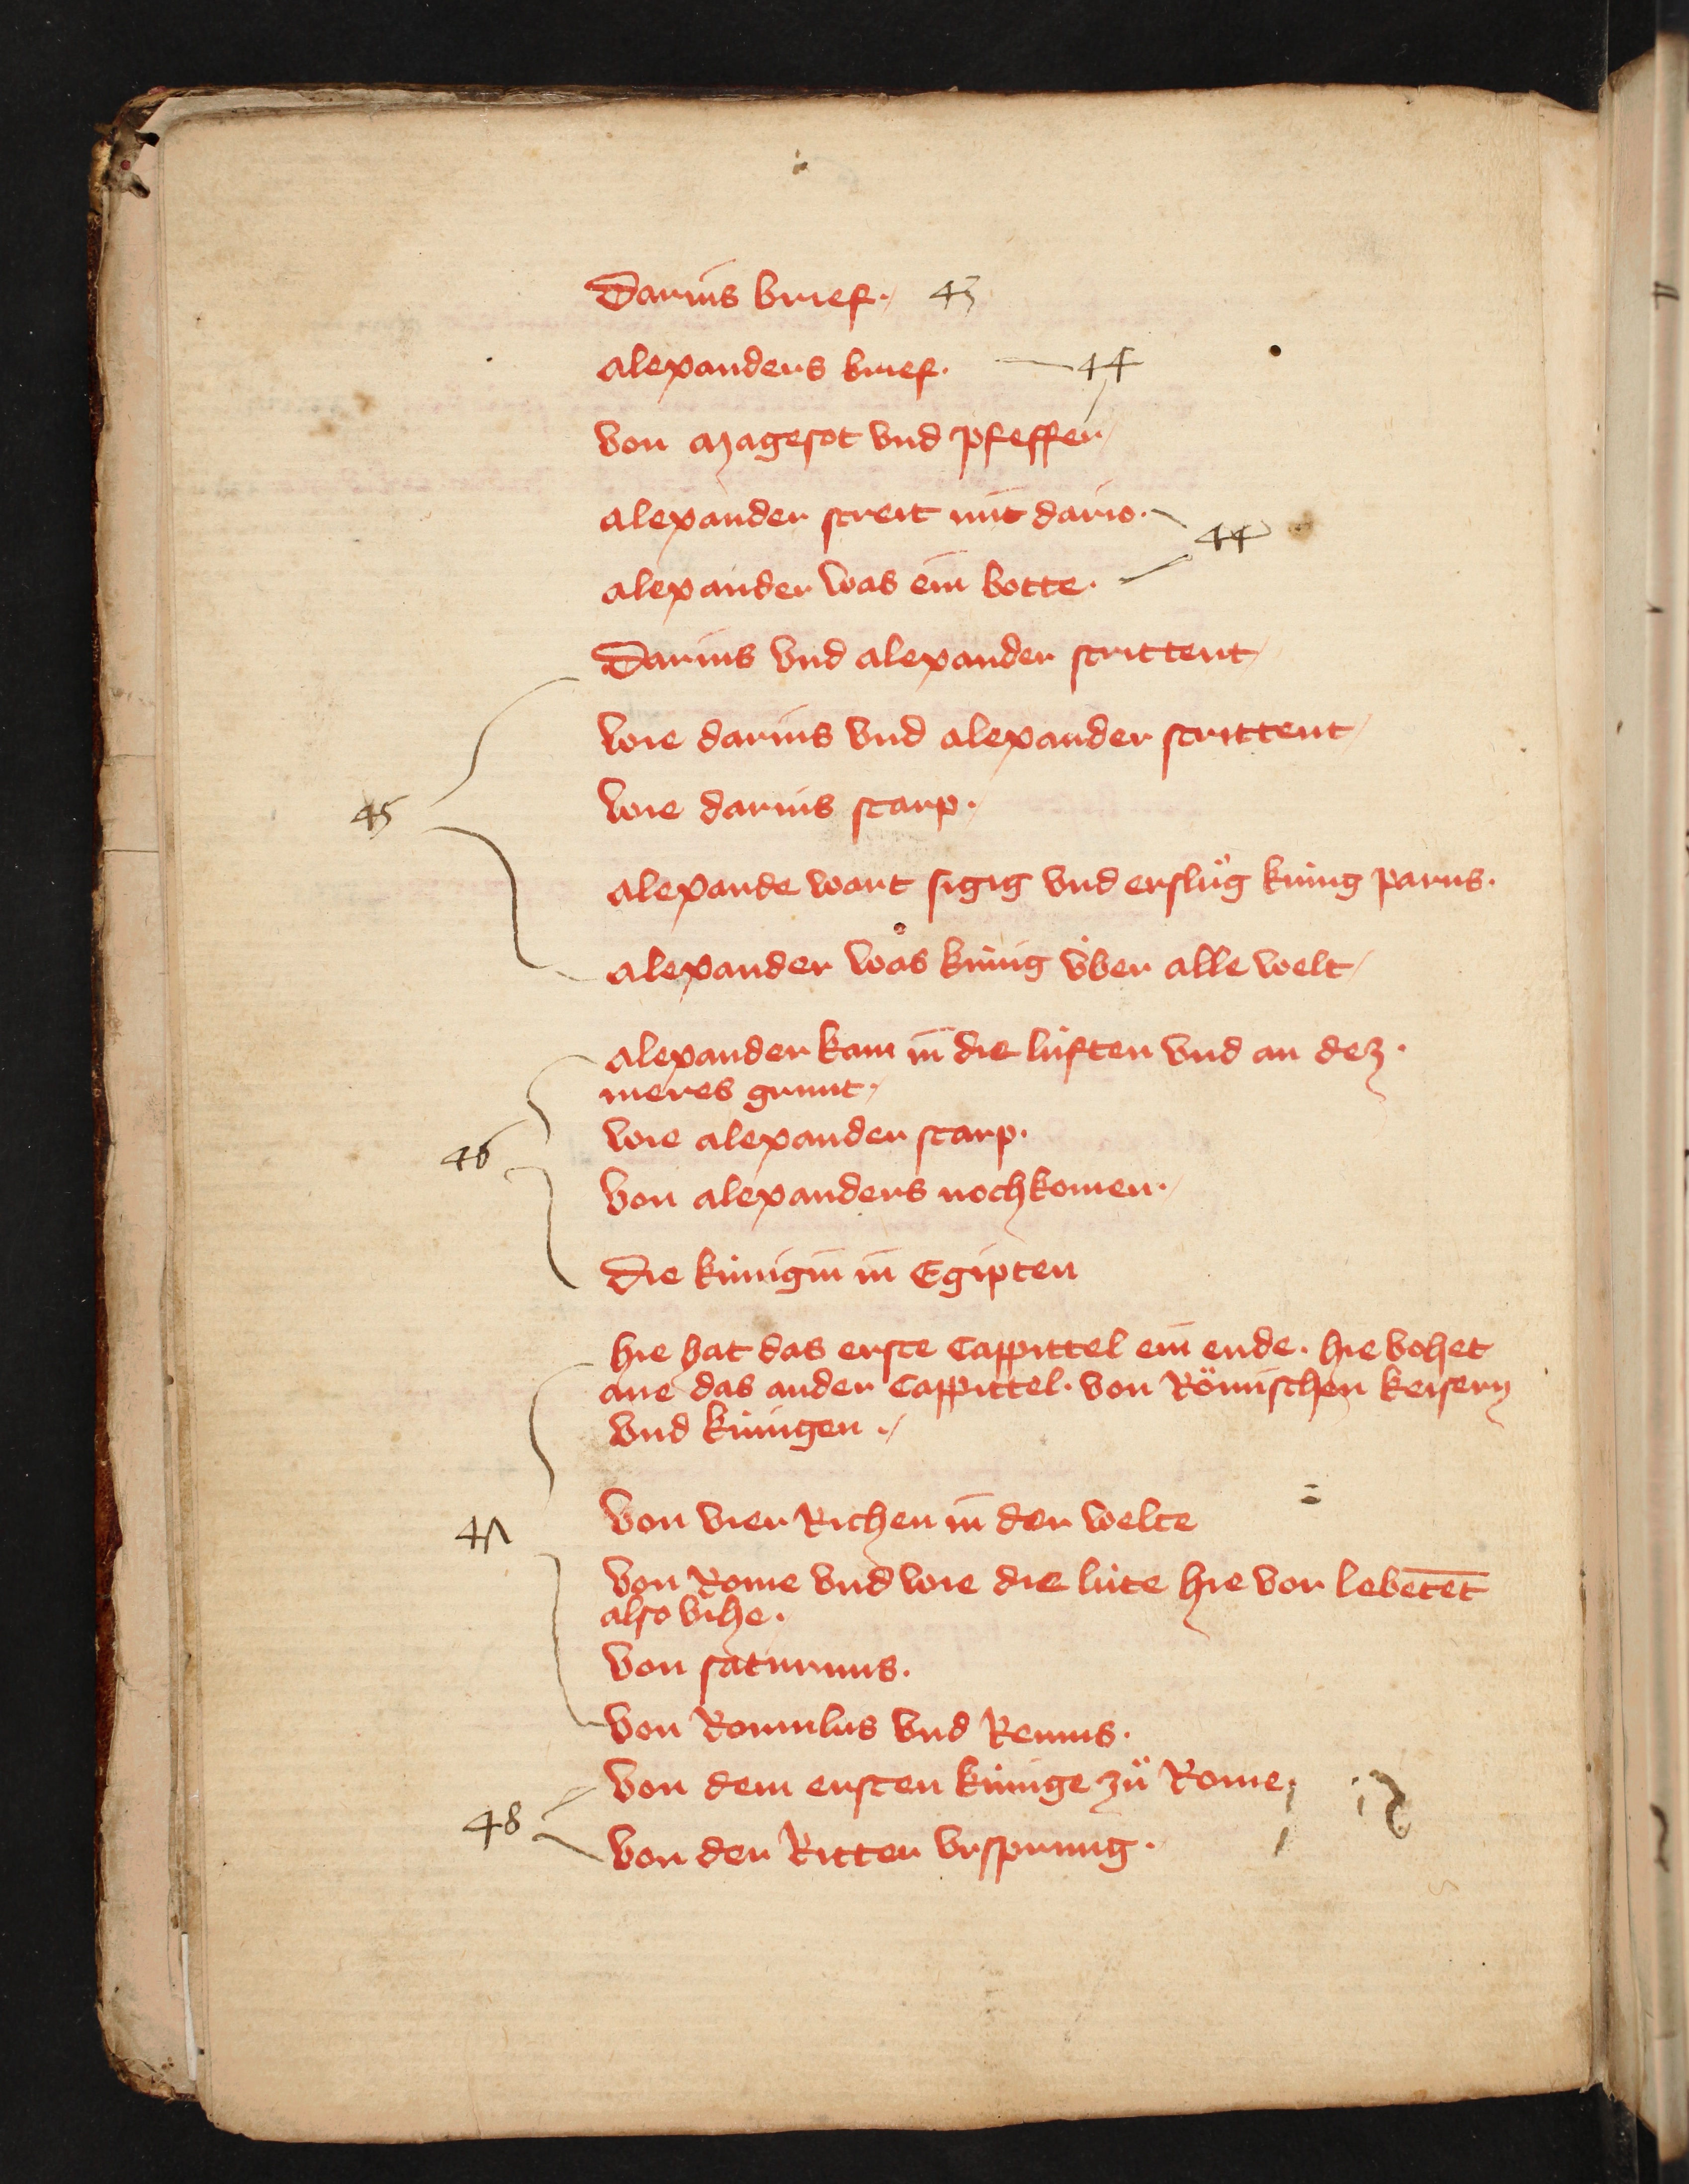 Darius brief. 43
alexanders brief. 44
von magesot vnd pfeffer
alexander streit mit dario.
44
alexander was ein botte.
Darius vnd alexander strittent
wie darius vnd alexander strittent
45 wie darius starp.
alexande wart sigig vnd erslůg kúnig parus.
alexander was kúnig v́ber alle welt
alexander kam in die lúften vnd an dez
meres grunt.
46 wie alexander starp.
von alexanders nochkomen.
Die kúnigin in Egipten
hie hat das erste Cappittel ein ende. hie vohet
ane das ander Cappittel. von Römischen keisern
vnd kúnigen.
47 von vier Richen in der welte
von Rome vnd wie die lúte hie vor lebetēt
also vihe.
von saturnus.
von Romulus vnd Remus.
von dem ersten kúnige zů Rome
48
von der Ritter vrsprung.